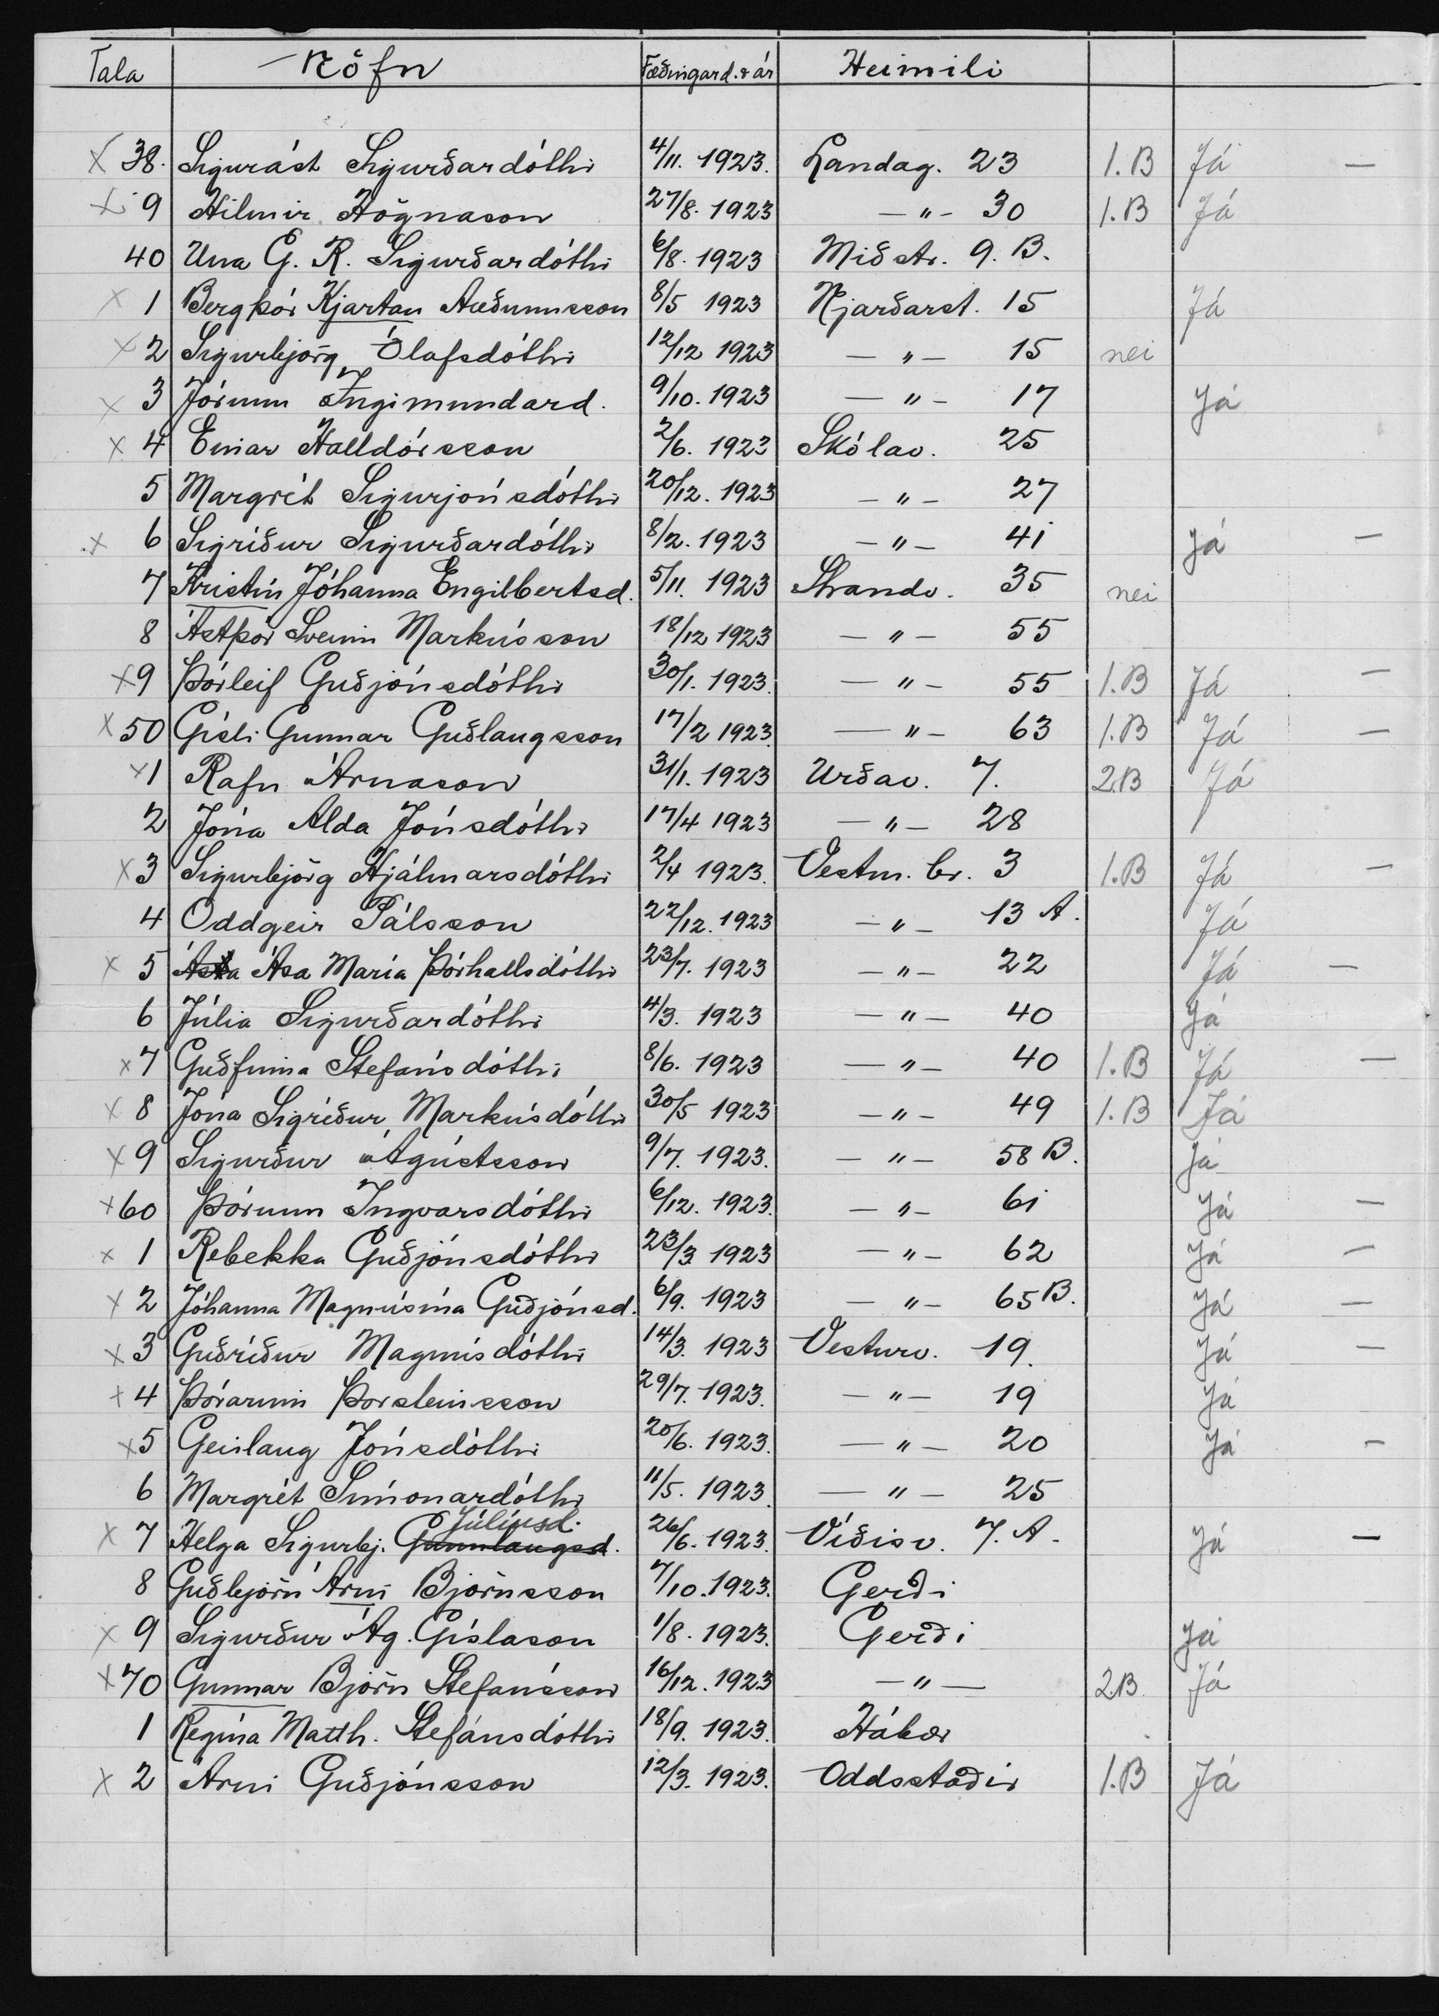 Tala Nöfn Fæðingard. & ár Heimili
x 38. Sigurást Sigurðardóttir 4/11. 1923. Landag. 23 1.B Já —
x 9 Hilmir Högnason 27/8. 1923 —"— 30 1.B Já
40 Una G. R. Sigurðardóttir 6/8. 1923 Miðstr. 9. B.
x 1 Bergþór Kjartan Auðunnsson 8/5 1923 Njarðarst. 15 Já
x 2 Sigurbjörg Ólafsdóttir 12/12 1923 —"— 15 nei
x 3 Jórunn Ingimundard. 9/10. 1923 —"— 17 Já
x 4 Einar Halldórsson 2/6. 1923 Skólav. 25
5 Margrét Sigurjónsdóttir 20/12. 1923 —"— 27
x 6 Sigríður Sigurðardóttir 8/2. 1923 —"— 41 Já —
7 Kristín Jóhanna Engilbertsd. 5/11. 1923 Strandv. 35 nei
8 Ástþór Sveinn Markússon 18/12 1923 —"— 55
x 9 Þórleif Guðjónsdóttir 30/1. 1923. —"— 55 1.B Já —
x 50 Gísli Gunnar Guðlaugsson 17/2 1923. —"— 63 1.B Já —
x 1 Rafn Árnason 31/1. 1923 Urðav. 7. 2.B Já
2 Jóna Alda Jónsdóttir 17/4 1923 —"— 28
x 3 Sigurbjörg Hjálmarsdóttir 2/4 1923. Vestm. br. 3 1.B Já —
4 Oddgeir Pálsson 22/12. 1923 —"— 13 A. Já
x 5 Ásta Ása María Þórhallsdóttir 23/7. 1923 —"— 22 Já —
6 Júlía Sigurðardóttir 4/3. 1923 —"— 40 Já
x 7 Guðfinna Stefánsdóttir 8/6. 1923 —"— 40 1.B Já —
x 8 Jóna Sigríður Markúsdóttir 30/5 1923 —"— 49 1.B Já
x 9 Sigurður Ágústsson 9/7. 1923. —"— 58 B. Já
x 60 Þórunn Ingvarsdóttir 6/12. 1923. —"— 61 Já —
x 1 Rebekka Guðjónsdóttir 23/3 1923 —"— 62 Já —
x 2 Jóhanna Magnúsína Guðjónsd. 6/9. 1923 —"— 65 B. Já —
x 3 Guðríður Magnúsdóttir 14/3. 1923 Vesturv. 19. Já —
x 4 Þórarinn Þorsteinsson 29/7. 1923. —"— 19 Já
x 5 Geirlaug Jónsdóttir 20/6. 1923. —"— 20 Já —
6 Margrét Símonardóttir 11/5. 1923. —"— 25
Júlíusd.
x 7 Helga Sigurbj. Gunnlaugsd. 26/6. 1923. Víðisv. 7. A. Já —
8 Guðbjörn Árni Björnsson 7/10. 1923. Gerði
x 9 Sigurður Ág. Gíslason 1/8. 1923. Gerði Já
x 70 Gunnar Björn Stefánsson 16/12. 1923 —"— 2.B Já
1 Regína Matth. Stefánsdóttir 18/9. 1923. Hábær
x 2 Árni Guðjónsson 12/3. 1923. Oddsstaðir 1.B Já